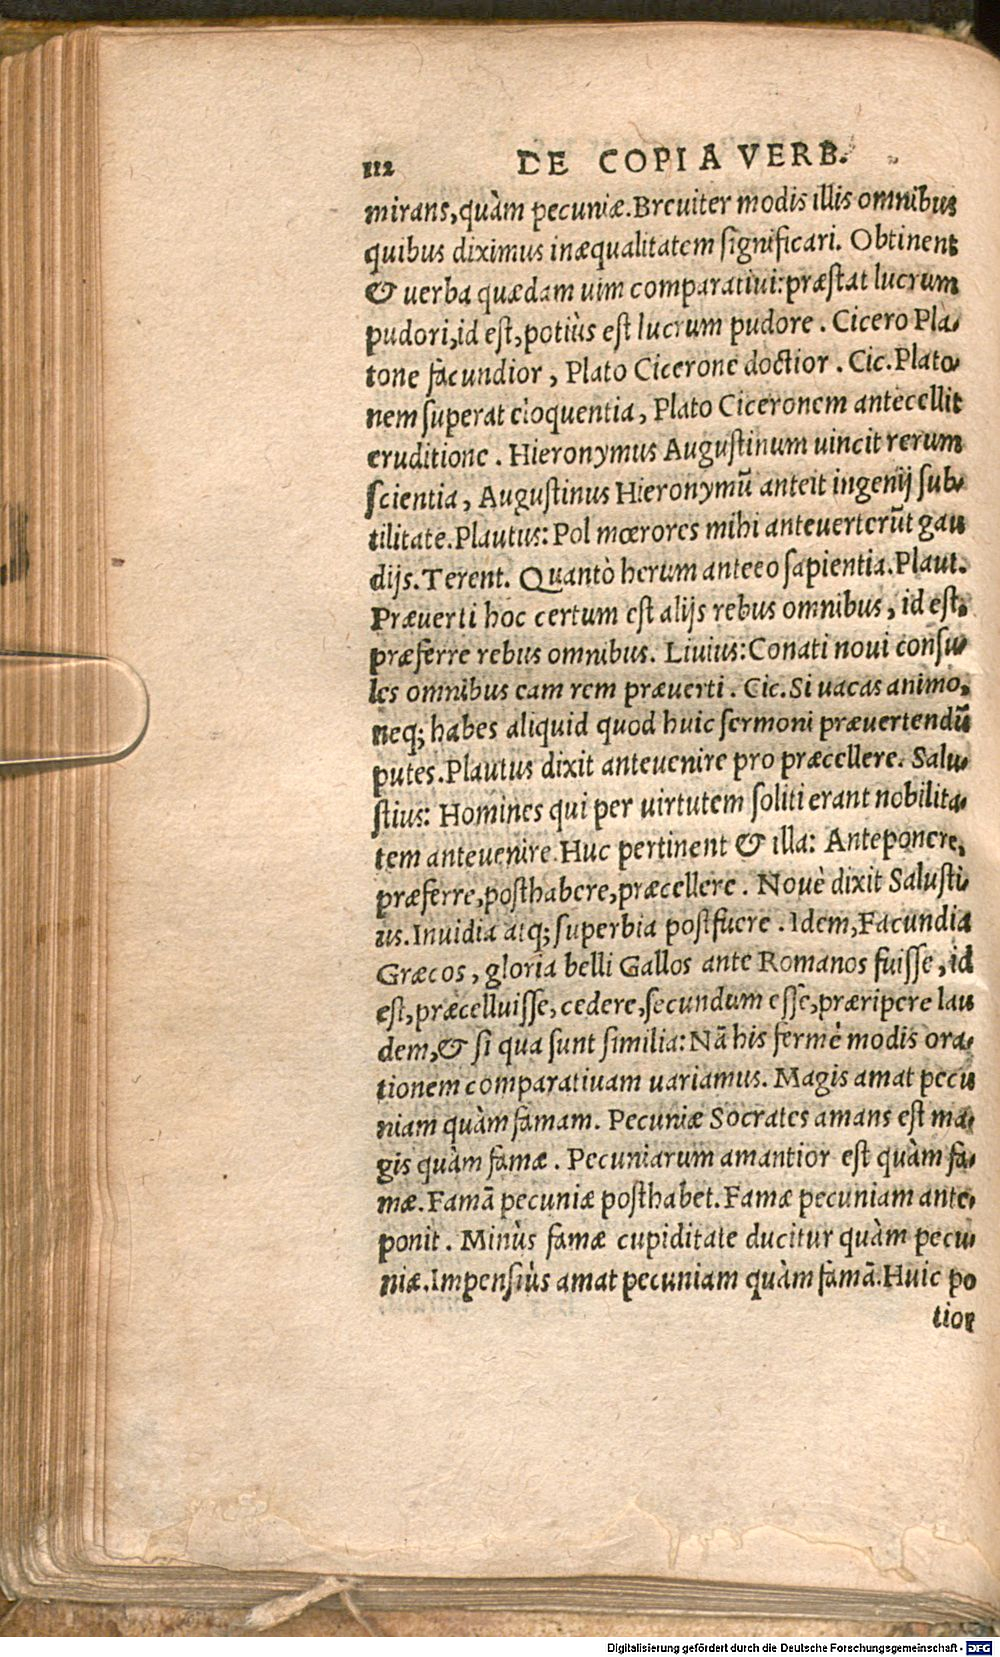 112 DE COPIA VERB.
mirans, quàm pecuniæ. Breuiter modis illis omnibus
quibus diximus inæqualitatem significari. Obtinent
& uerba quædam uim comparatiui: præstat lucrum
pudori, id est, potiùs est lucrum pudore. Cicero Pla-
tone facundior, Plato Cicerone doctior. Cic. Plato-
nem superat eloquentia, Plato Ciceronem antecellit
eruditione. Hieronymus Augustinum uincit rerum
scientia, Augustinus Hieronymū anteit ingenij sub-
tilitate. Plautus: Pol mœrores mihi anteuerterūt gau
dijs. Terent. Quantò herum anteeo sapientia. Plaut.
Præuerti hoc certum est alijs rebus omnibus, id est,
præferre rebus omnibus. Liuius: Conati noui consu-
les omnibus eam rem præuerti. Cic. Si uacas animo,
neq; habes aliquid quod huic sermoni præuertendū
putes. Plautus dixit anteuenire pro præcellere. Salu-
stius: Homines qui per uirtutem soliti erant nobilita-
tem anteuenire. Huc pertinent & illa: Anteponere,
præferre, posthabere, præcellere. Nouè dixit Salusti-
us. Inuidia atq; superbia postfuere. Idem, Facundia
Græcos, gloria belli Gallos ante Romanos fuisse, id
est, præcelluisse, cedere, secundum esse, præripere lau
dem, & si qua sunt similia: Nā his fermè modis ora-
tionem comparatiuam uariamus. Magis amat pecu
niam quàm famam. Pecuniæ Socrates amans est ma-
gis quàm famæ. Pecuniarum amantior est quàm fa-
mæ. Famā pecuniæ posthabet. Famæ pecuniam ante-
ponit. Minùs famæ cupiditate ducitur quàm pecu-
niæ. Impensiùs amat pecuniam quàm famā. Huic po
tior
Digitalisierung gefördert durch die Deutsche Forschungsgemeinschaft - DFG